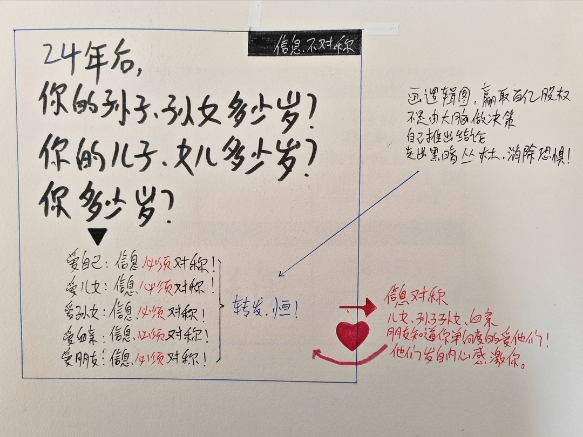 信息不对称
24年后,
你的孙子、孙女多少岁?
你的儿子、女儿多少岁?
你多少岁?
爱自己:信息必须对称!
爱儿女:信息必须对称!
爱孙女:信息必须对称!
爱血亲:信息必须对称!
爱朋友:信息必须对称!
转发,恒!
画逻辑图,赢取百亿股权
不是由大脑做决策
自己推出结论
走出黑暗丛林,消除恐惧!
信息对称
儿女、孙子孙女、血亲
朋友知道你单向度的爱他们!
他们发自内心感激你。